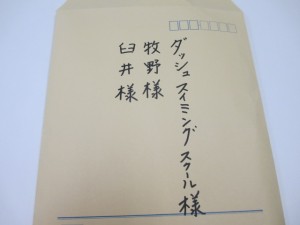 ダッシュスイミングスクール様
牧野様
臼井様